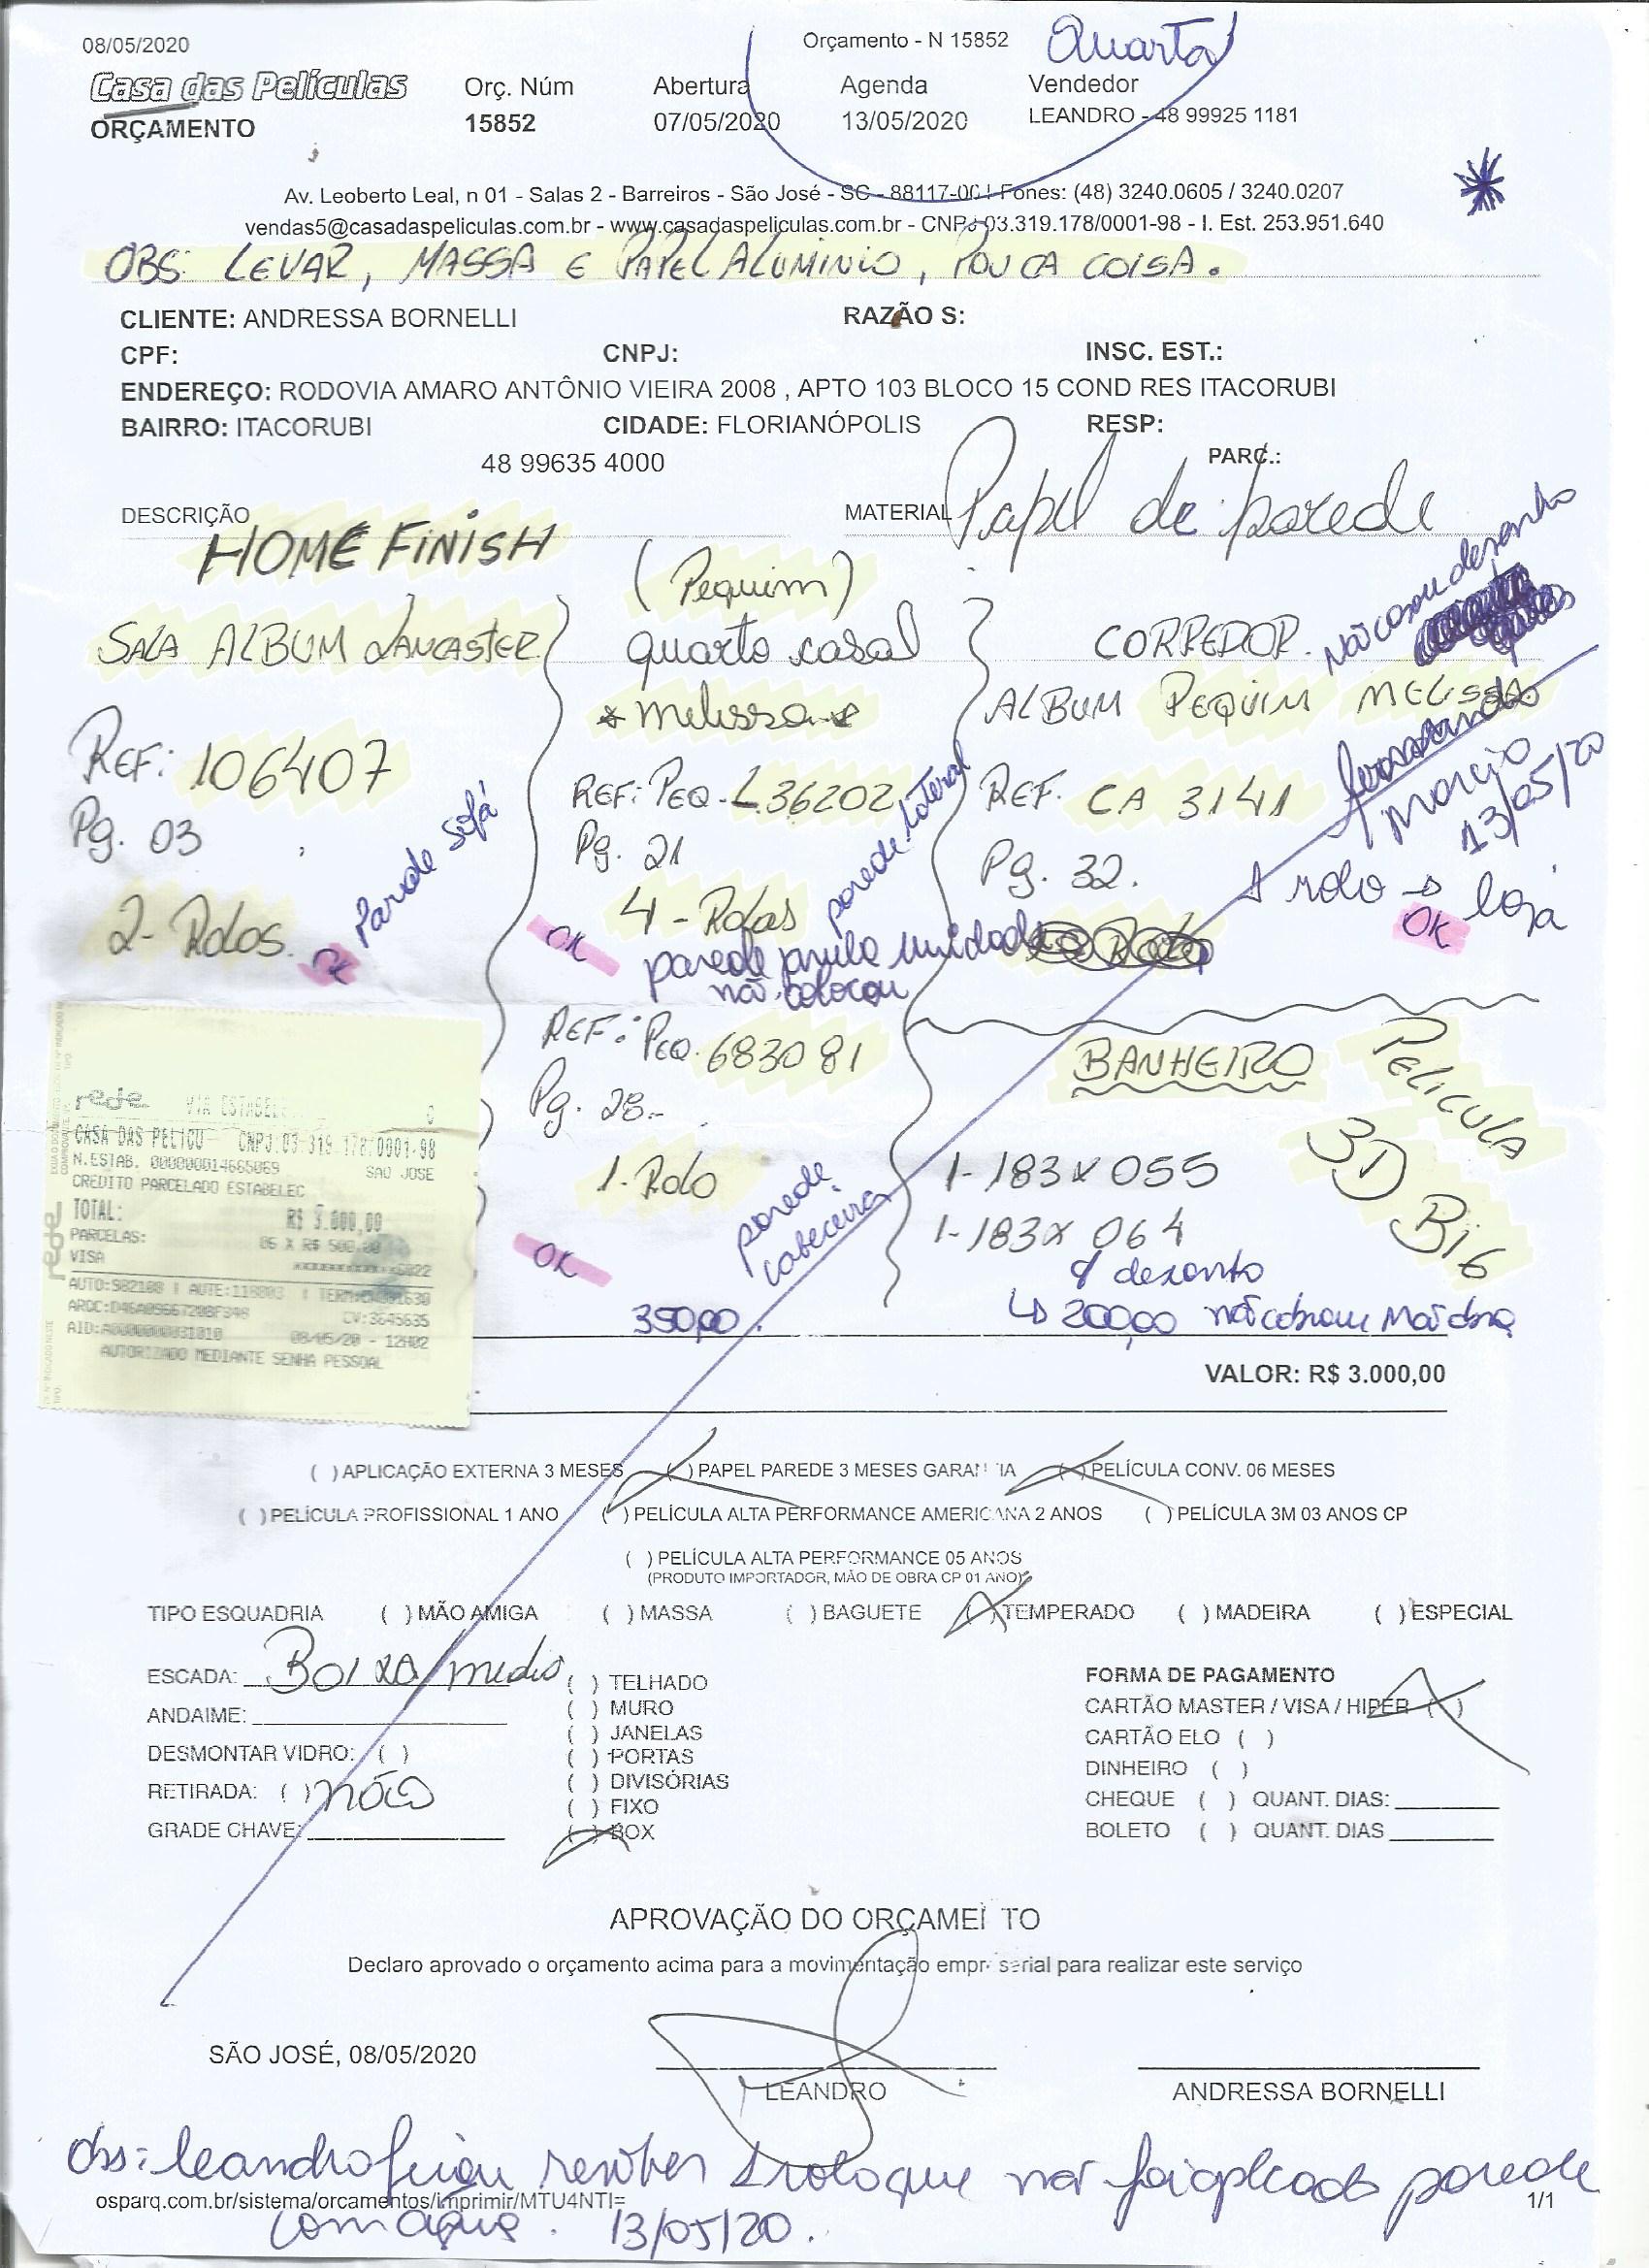 08/05/2020
Orçamento - N 15852
Quarta
Casa das Películas
ORÇAMENTO
Orç. Núm
15852
Abertura
07/05/2020
Agenda
13/05/2020
Vendedor
LEANDRO - 48 99925 1181
Av. Leoberto Leal, n 01 - Salas 2 - Barreiros - São José - SC - 88117-00 Fones: (48) 3240.0605 / 3240.0207
vendas5@casadaspeliculas.com.br - www.casadaspeliculas.com.br - CNPJ 03.319.178/0001-98 - I. Est. 253.951.640
OBS: LEVAR, MASSA E PAPEL ALUMINIO, POUCA COISA.
CLIENTE: ANDRESSA BORNELLI
RAZÃO S:
CPF:
CNPJ:
INSC. EST.:
ENDEREÇO: RODOVIA AMARO ANTÔNIO VIEIRA 2008 , APTO 103 BLOCO 15 COND RES ITACORUBI
BAIRRO: ITACORUBI
CIDADE: FLORIANÓPOLIS
RESP:
48 99635 4000
PARC.:
DESCRIÇÃO
MATERIAL
Papel de parede
HOME FINISH
SALA ALBUM LANCASTER
REF: 106407
Pg. 03
2- Rolos.
OK Parede sofá
(Pequim)
quarto casal
* melissa *
REF: PEQ. L36202
Pg. 21
4 - Rolos
parede lateral
OK
não colocou
REF: PEQ. 683081
Pg. 28.
1. Rolo
parede cabeceira
OK
350,00.
CORREDOR.
Não casou desenho
ALBUM PEQUIM MELISSA
REF. CA 3141
Pg. 32.
Marcio
13/05/20
1 rolo → loja
OK
BANHEIRO
PELICULA
3D
1- 183 x 055
1- 183 x 064
200,00
rede
VIA ESTABEL
CASA DAS PELICU CNPJ:03.319.178/0001-98
N.ESTAB. 000000014665069 SAO JOSE
CREDITO PARCELADO ESTABELEC
TOTAL: R$ 3.000,00
PARCELAS: 06 X R$ 500,00
VISA
CV:3645635
08/05/20 - 12H02
AUTORIZADO MEDIANTE SENHA PESSOAL
VALOR: R$ 3.000,00
( ) APLICAÇÃO EXTERNA 3 MESES ( ) PAPEL PAREDE 3 MESES GARANTIA ( ) PELÍCULA CONV. 06 MESES
( ) PELÍCULA PROFISSIONAL 1 ANO ( ) PELÍCULA ALTA PERFORMANCE AMERICANA 2 ANOS ( ) PELÍCULA 3M 03 ANOS CP
( ) PELÍCULA ALTA PERFORMANCE 05 ANOS
(PRODUTO IMPORTADOR, MÃO DE OBRA CP 01 ANO)
TIPO ESQUADRIA ( ) MÃO AMIGA ( ) MASSA ( ) BAGUETE ( ) TEMPERADO ( ) MADEIRA ( ) ESPECIAL
ESCADA:
ANDAIME:
DESMONTAR VIDRO: ( )
RETIRADA: ( ) não
GRADE CHAVE:
( ) TELHADO
( ) MURO
( ) JANELAS
( ) PORTAS
( ) DIVISÓRIAS
( ) FIXO
( ) BOX
FORMA DE PAGAMENTO
CARTÃO MASTER / VISA / HIPER ( )
CARTÃO ELO ( )
DINHEIRO ( )
CHEQUE ( ) QUANT. DIAS:
BOLETO ( ) QUANT. DIAS
APROVAÇÃO DO ORÇAMENTO
Declaro aprovado o orçamento acima para a movimentação empresarial para realizar este serviço
SÃO JOSÉ, 08/05/2020
LEANDRO
ANDRESSA BORNELLI
obs: leandro 1 rolo que não foi aplicado parede
osparq.com.br/sistema/orcamentos/imprimir/MTU4NTI=
1/1
13/05/20.